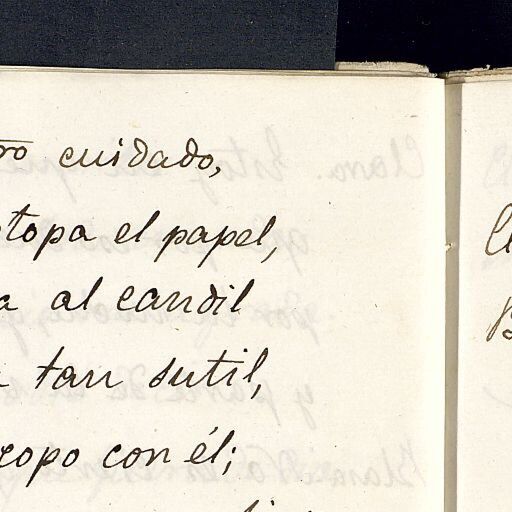 cuidado,
topa el papel,
a al candil
tan sutil,
copo con él;